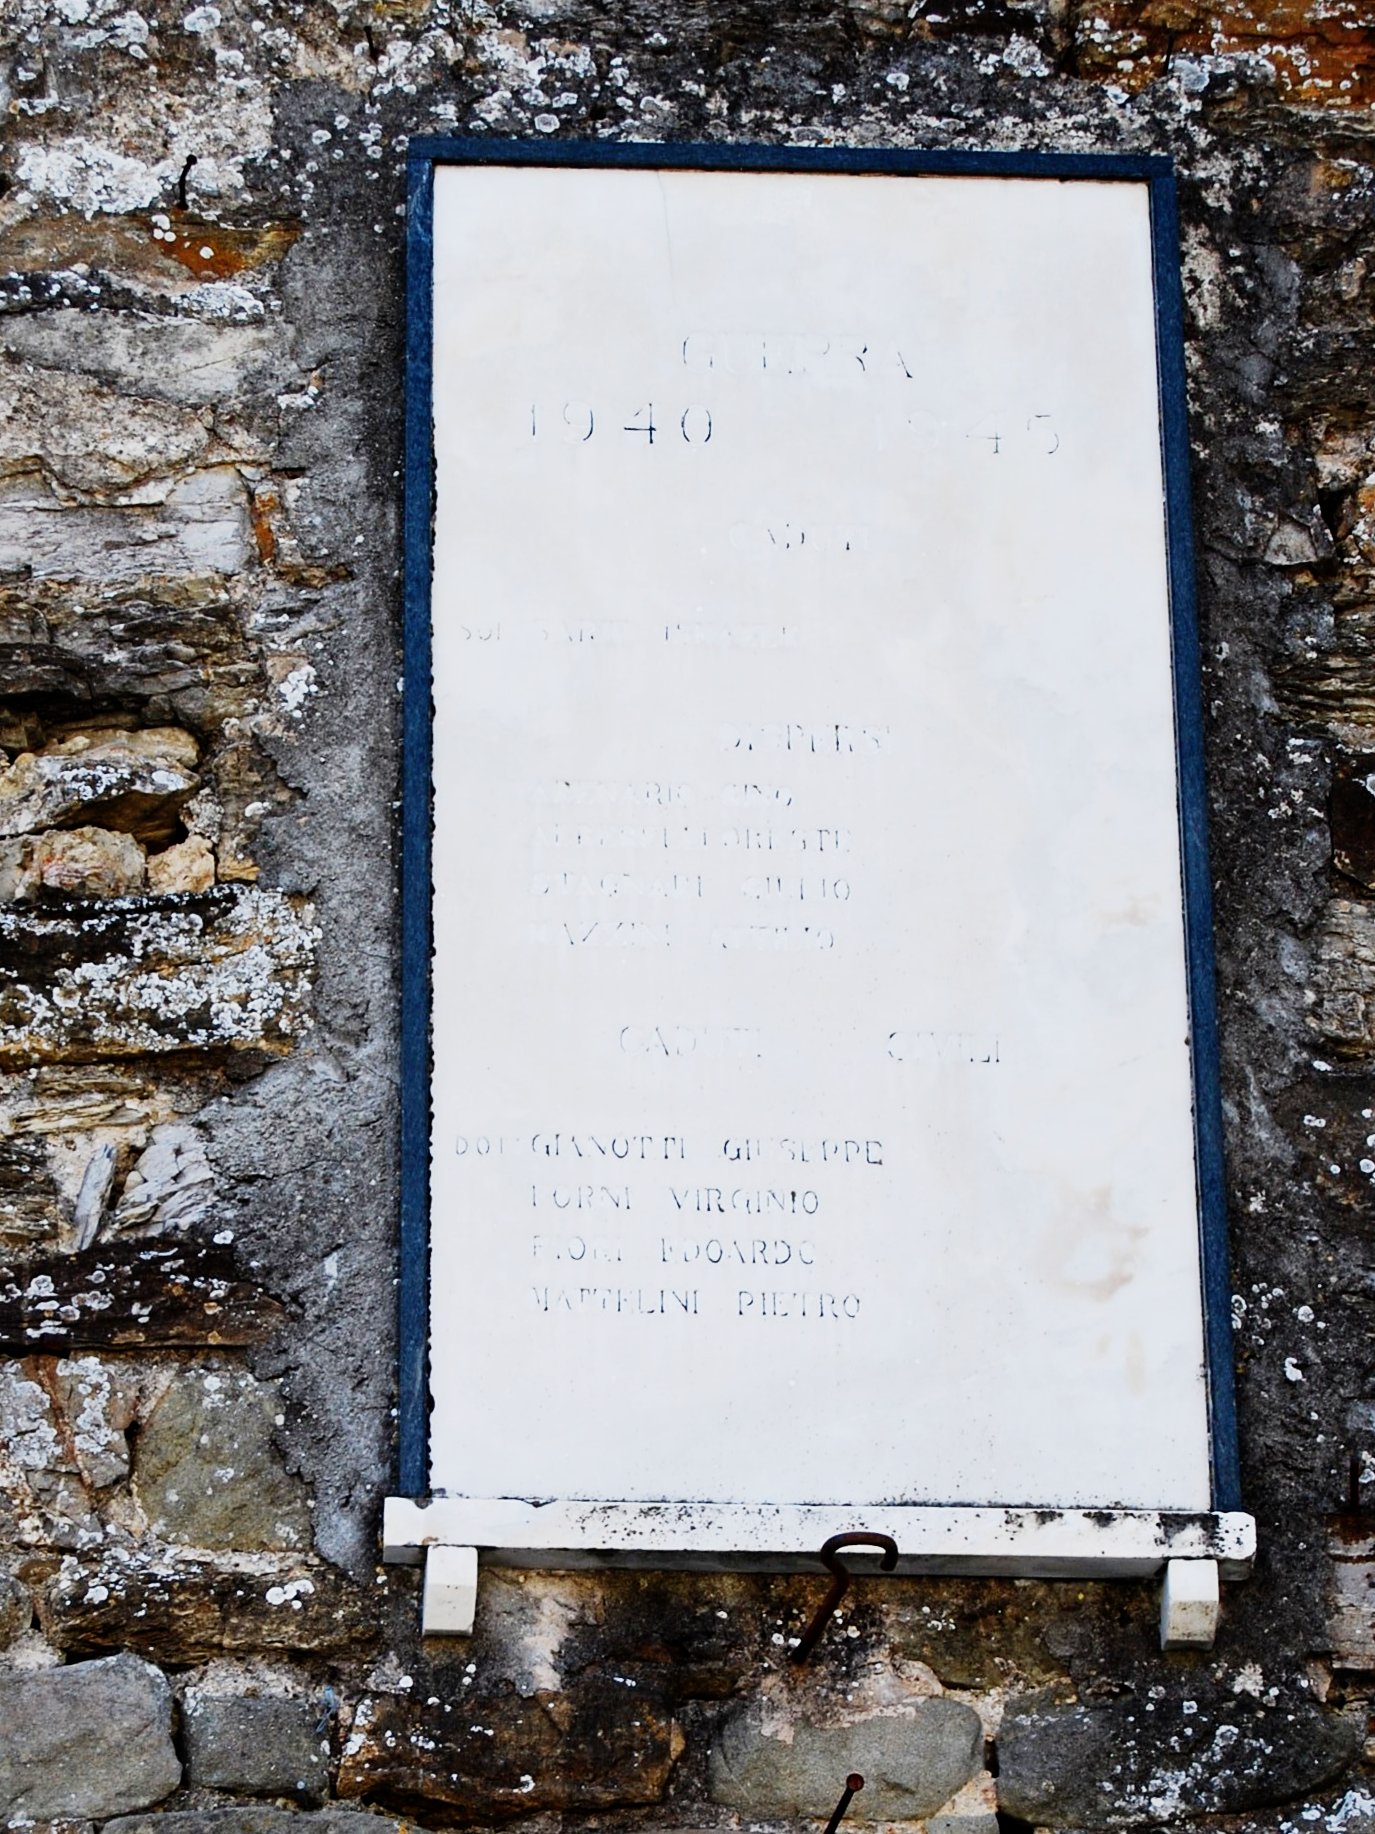 GUERRA
1940 1945
CADUTI
SOL
DISPERSI
GINO
ORESTE
STAGNARI GIULIO
MAZZINI ATTILIO
CADUTI CIVILI
DOT GIANOTTI GIUSEPPE
FORNI VIRGINIO
FIORI EDOARDO
MATTELINI PIETRO